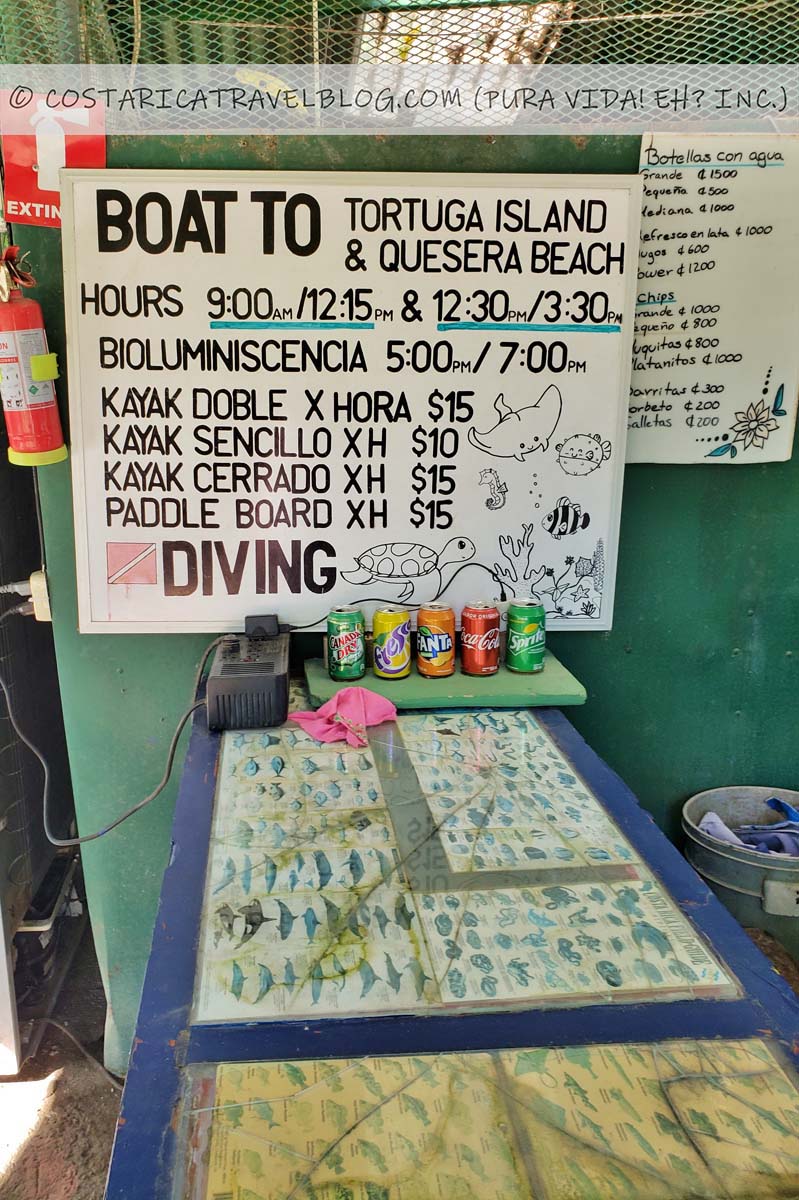 © COSTARICATRAVELBLOG.COM (PURA VIDA! EH? INC.)
EXTIN
BOAT TO TORTUGA ISLAND
& QUESERA BEACH
HOURS 9:00AM/12:15PM & 12:30PM/3:30PM
BIOLUMINISCENCIA 5:00PM/7:00PM
KAYAK DOBLE X HORA $15
KAYAK SENCILLO X H $10
KAYAK CERRADO X H $15
PADDLE BOARD X H $15
DIVING
Botellas con agua
Grande ₡1500
Pequeña ₡500
Mediana ₡1000
efresco en lata ₡1000
ugos ₡600
ower ₡1200
Chips
rande ₡1000
equeño ₡800
uquitas ₡800
latanitos ₡1000
arritas ₡300
orbeto ₡200
alletas ₡200
CANADA DRY
Fresca
FANTA
Coca-Cola
Sprite